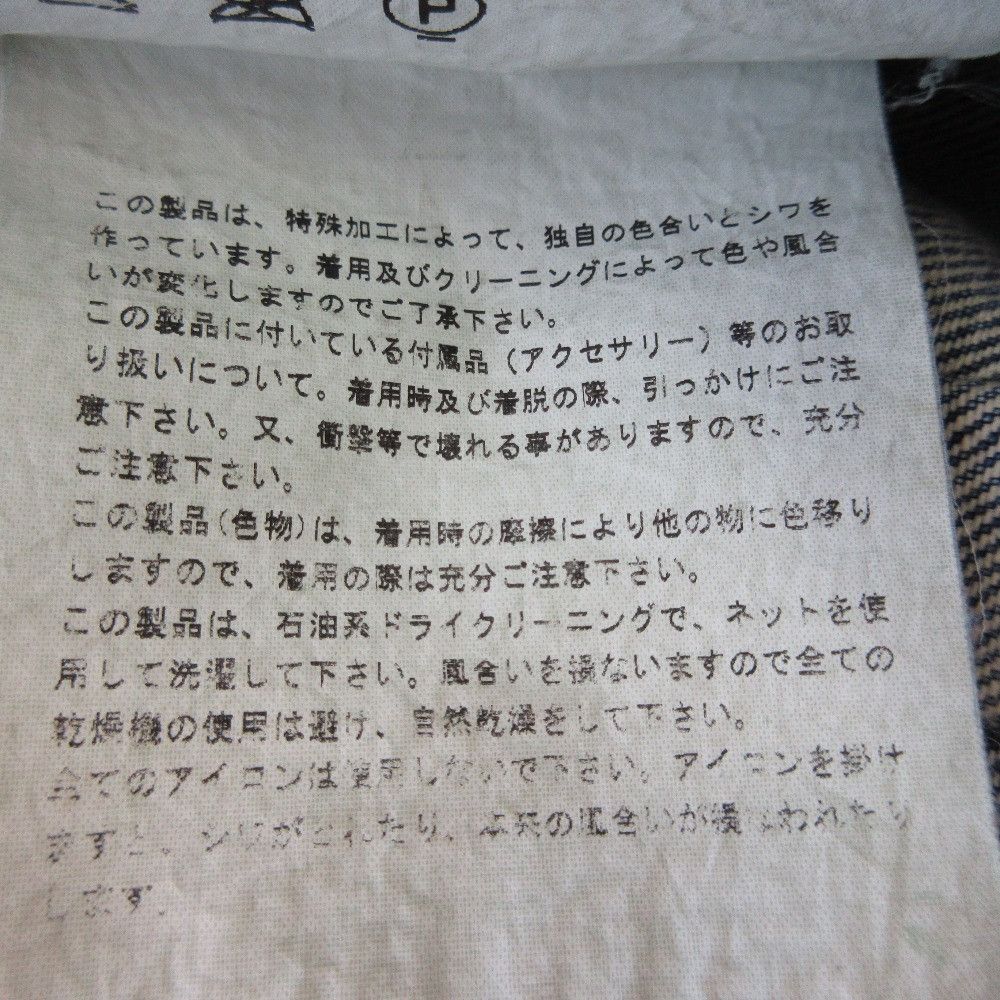 P
この製品は、特殊加工によって、独自の色合いとシワを
作っています。着用及びクリーニングによって色や風合
いが変化しますのでご了承下さい。
この製品に付いている付属品(アクセサリー)等のお取
り扱いについて。着用時及び着脱の際、引っかけにご注
意下さい。又、衝撃等で壊れる事がありますので、充分
ご注意下さい。
この製品(色物)は、着用時の摩擦により他の物に色移り
しますので、着用の際は充分ご注意下さい。
この製品は、石油系ドライクリーニングで、ネットを使
用して洗濯して下さい。風合いを損ないますので全ての
乾燥機の使用は避け、自然乾燥をして下さい。
全てのアイロンは使用しないで下さい。アイロンを掛け
ますと、シワがとれたり、本来の風合いが損なわれたり
します。